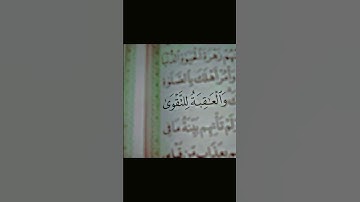 زَهْرَةَ الْحَيَوٰةِ الدُّنْيَا
وَأْمُرْ أَهْلَكَ بِالصَّلَوٰةِ
وَالْعَٰقِبَةُ لِلتَّقْوَىٰ
تَأْتِهِم بَيِّنَةُ مَا فِى